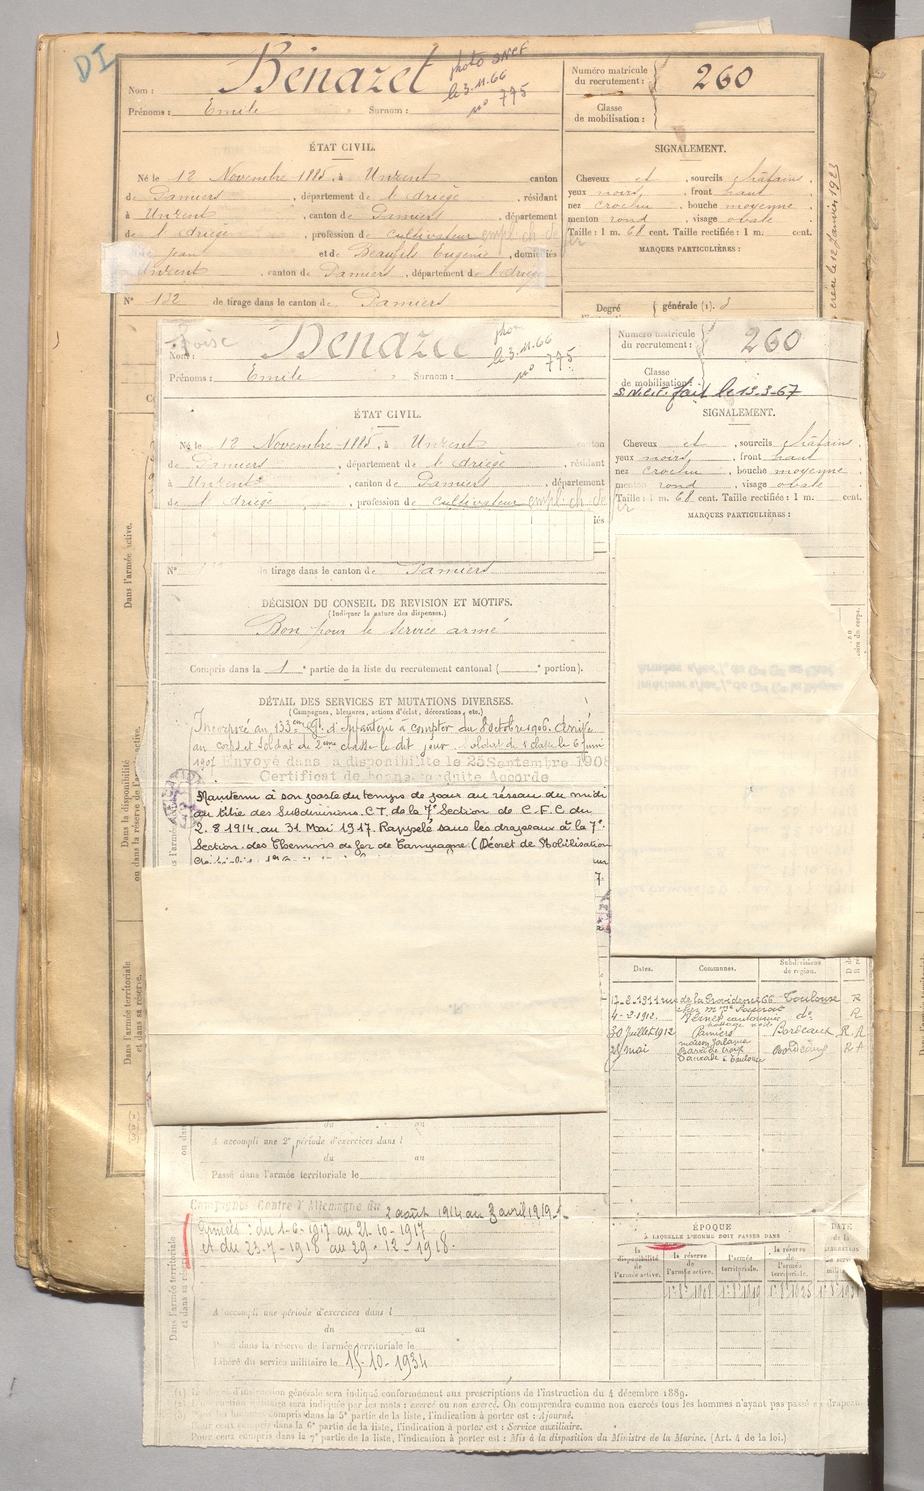 DI
Nom : Bénazet
photo SNCF
le 3.11.66
no 775
Prénoms : Emile Surnom :
Numéro matricule
du recrutement : 260
Classe
de mobilisation :
ÉTAT CIVIL.
Né le 12 Novembre 1885, à Unzent canton
de Pamiers , département de l'Ariège , résidant
à Unzent , canton de Pamiers , département
de l'Ariège , profession de cultivateur empl. ch. de fer
Jean et de Beaufils Eugénie , domiciliés
Unzent , canton de Pamiers , département de l'Ariège
N° 132 de tirage dans le canton de Pamiers
SIGNALEMENT.
Cheveux et , sourcils châtains .
yeux noirs , front haut
nez croclu , bouche moyenne
menton rond , visage ovale
Taille : 1 m. 68 cent. Taille rectifiée : 1 m. cent.
MARQUES PARTICULIÈRES :
le 12 Janvier 1923
Degré
générale (1). 3
Nom : Bénaze
le 3.11.66
no 775
Prénoms : Emile Surnom :
Numéro matricule
du recrutement : 260
Classe
de mobilisation :
S.N.C.F. fait le 13-3-67
ÉTAT CIVIL.
Né le 12 Novembre 1885, à Unzent canton
de Pamiers , département de l'Ariège , résidant
à Unzent , canton de Pamiers , département
de l'Ariège , profession de cultivateur empl. ch. de
SIGNALEMENT.
Cheveux et , sourcils châtains .
yeux noirs , front haut
nez croclu , bouche moyenne
menton rond , visage ovale
Taille : 1 m. 68 cent. Taille rectifiée : 1 m. cent.
MARQUES PARTICULIÈRES :
N° de tirage dans le canton de Pamiers
DÉCISION DU CONSEIL DE REVISION ET MOTIFS.
(Indiquer la nature des dispenses.)
Bon pour le service armé
Compris dans la 1e partie de la liste du recrutement cantonal ( e portion).
DÉTAIL DES SERVICES ET MUTATIONS DIVERSES.
(Campagnes, blessures, actions d'éclat, décorations, etc.)
Incorporé au 133ème Rgt. d'Infanterie à compter du 8 octobre 1906. Arrivé
au corps et soldat de 2ème classe le dit jour. Soldat de 1 classe le 6 juin
1907 Envoyé dans la disponibilité le 25 Septembre 1908
Certificat de bonne conduite Accordé
Maintenu à son poste du temps de paix au réseau du midi
au titre des Subdivisions. C.T. de la 7e Section de C.F.C du
2.8.1914 au 31 Mai 1917. Rappelé sous les drapeaux à la 7e.
Section des Chemins de fer de Campagne (Décret de Mobilisation
Dans l'armée active.
Dans la disponibilité
ou dans la réserve de l'armée active.
Dans l'armée territoriale
et dans sa réserve.
Dates. Communes. Subdivisions
de région.
17-2-1911 rue de la Providence 66 Toulouse R
4-2-1912. do R
30 Juillet 1912 Pamiers Bordeaux R A
28 mai Bordeaux R A
du au
A accompli une 2e période d'exercices dans l
du au
Passé dans l'armée territoriale le
Campagnes Contre l'Allemagne du 2 août 1914 au 3 avril 1919
Armées : du 1-6-1917 au 21-10-1917
et du 23-7-1918 au 29-12-1918.
A accompli une période d'exercices dans l
du au
Passé dans la réserve de l'armée territoriale le
Libéré du service militaire le 15-10-1934
Dans l'armée territoriale
et dans sa réserve.
ÉPOQUE
À LAQUELLE L'HOMME DOIT PASSER DANS
DATE
DE LA
LIBÉRATION
la disponibilité de l'armée active. la réserve de l'armée active. l'armée territoriale. la réserve de l'armée territoriale.
(1) Le degré d'instruction générale sera indiqué conformément aux prescriptions de l'instruction du 4 décembre 1889.
instruction militaire sera indiquée par les mots : exercé ou non exercé. On comprendra comme non exercés tous les hommes n'ayant pas passé
Pour les hommes compris dans la 5e partie de la liste, l'indication à porter est : Ajourné.
Pour ceux compris dans la 6e partie de la liste, l'indication à porter est : Service auxiliaire.
Pour ceux compris dans la 7e partie de la liste, l'indication à porter est : Mis à la disposition du Ministre de la Marine. (Art. 4 de la loi.)